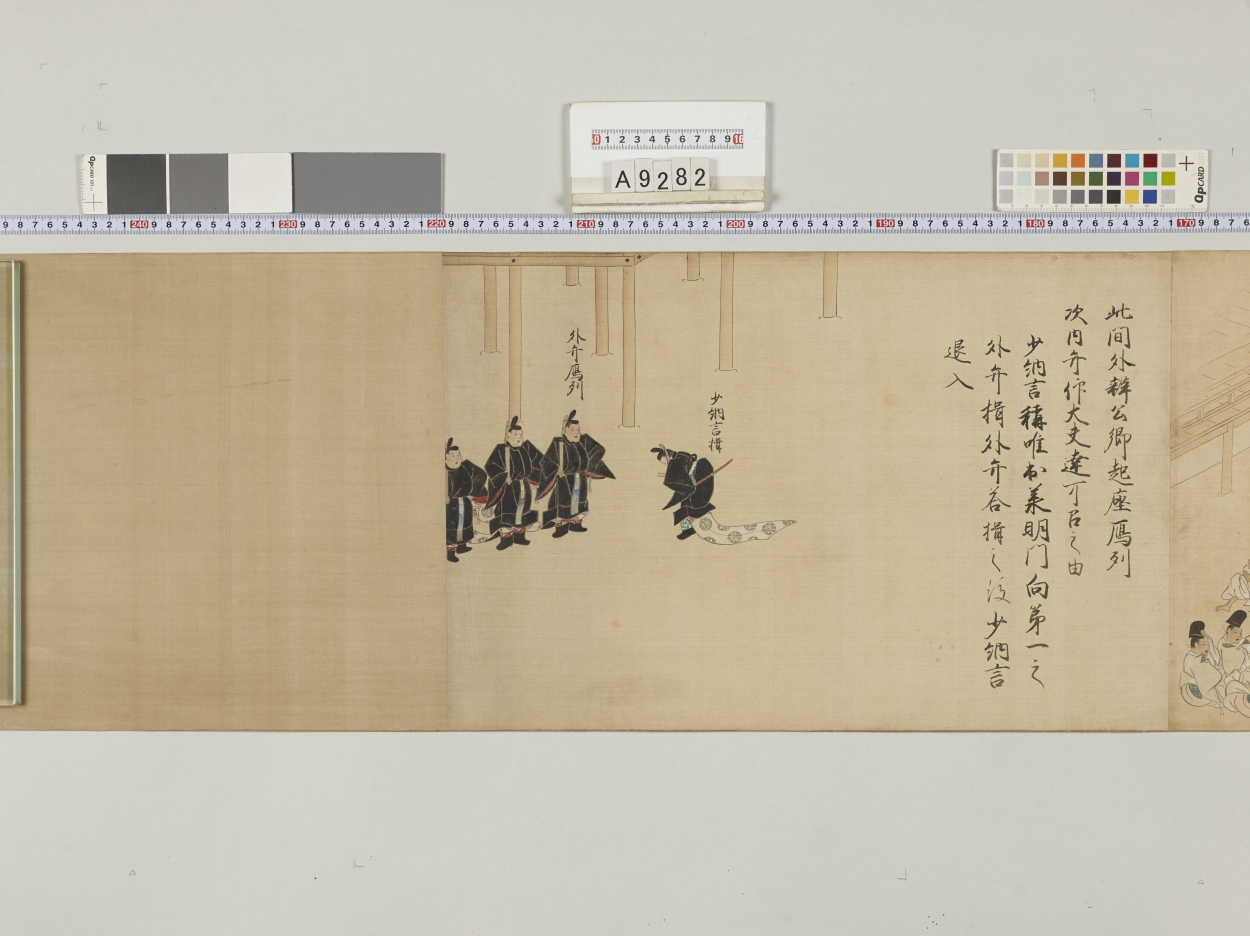 此間外辨公卿起座鴈列
次内弁仰大夫達可召之由
少納言稱唯出美明門向第一之
外弁揖外弁答揖之後少納言
退入
少納言揖
外弁鴈列
A9282
0 1 2 3 4 5 6 7 8 9 10
240 230 220 210 200 190 180 170
QPCARD
QPCARD